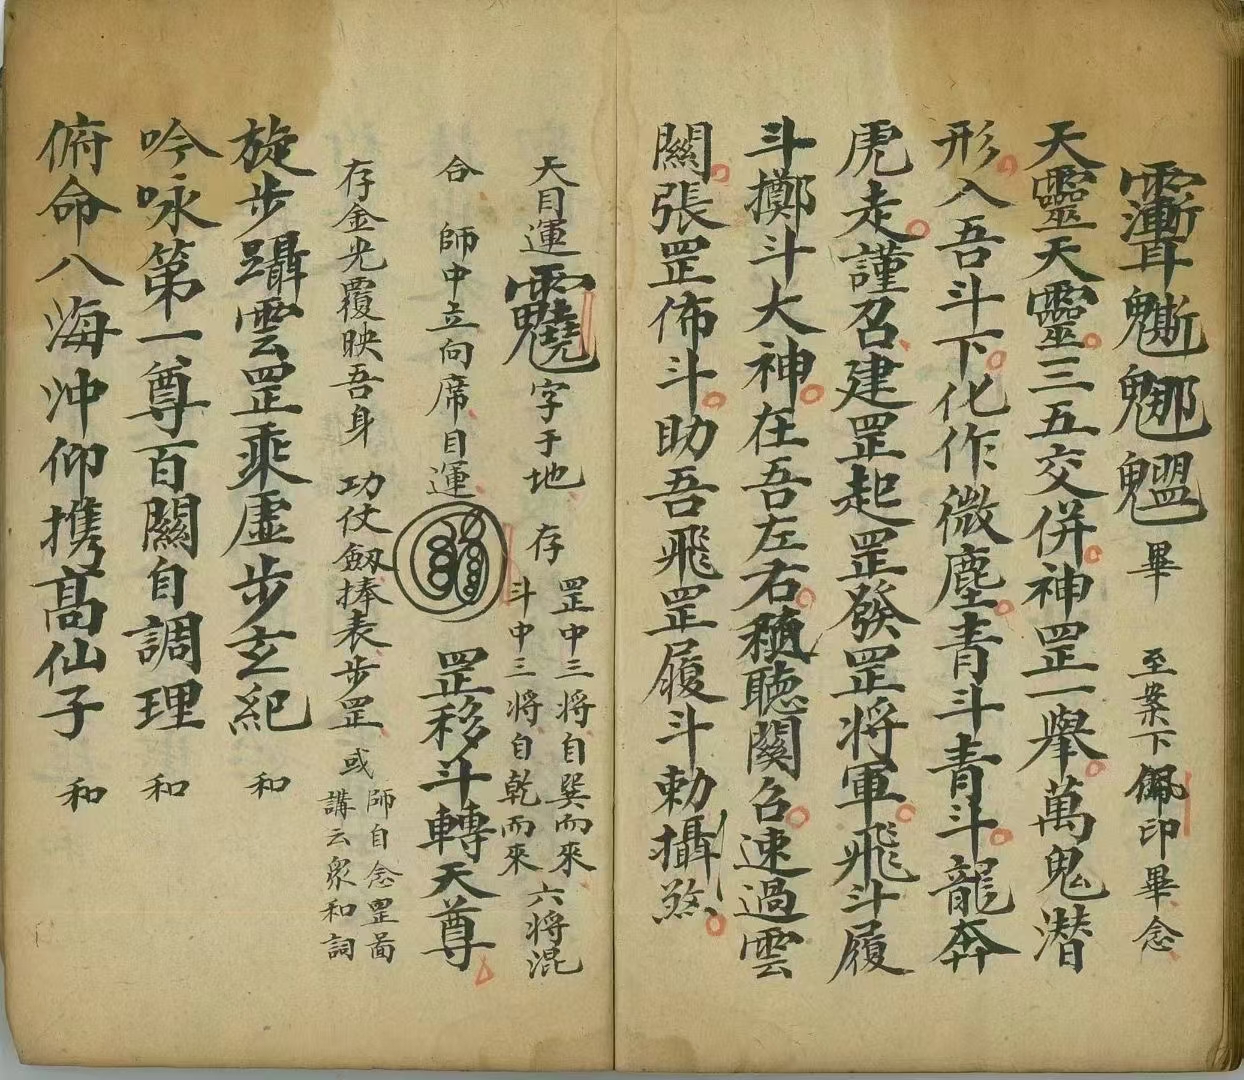 畢　至案下佩印畢念
天靈天靈三五交併神罡一舉萬鬼潛
形入吾斗下化作微塵青斗青斗龍奔
虎走謹召建罡起罡發罡將軍飛斗履
斗擲斗大神在吾左右聽關召速過雲
關張罡佈斗助吾飛罡履斗勅攝煞
天目運字于地　存　罡中三將自巽而來　斗中三將自乾而來　六將混
合　師中立向席目運　罡移斗轉天尊
存金光覆映吾身　功仗劍捧表步罡　或　師自念罡啚　講云衆和詞
旋步躡雲罡乘虛步玄紀　和
吟咏第一尊百關自調理　和
俯命八海冲仰携高仙子　和